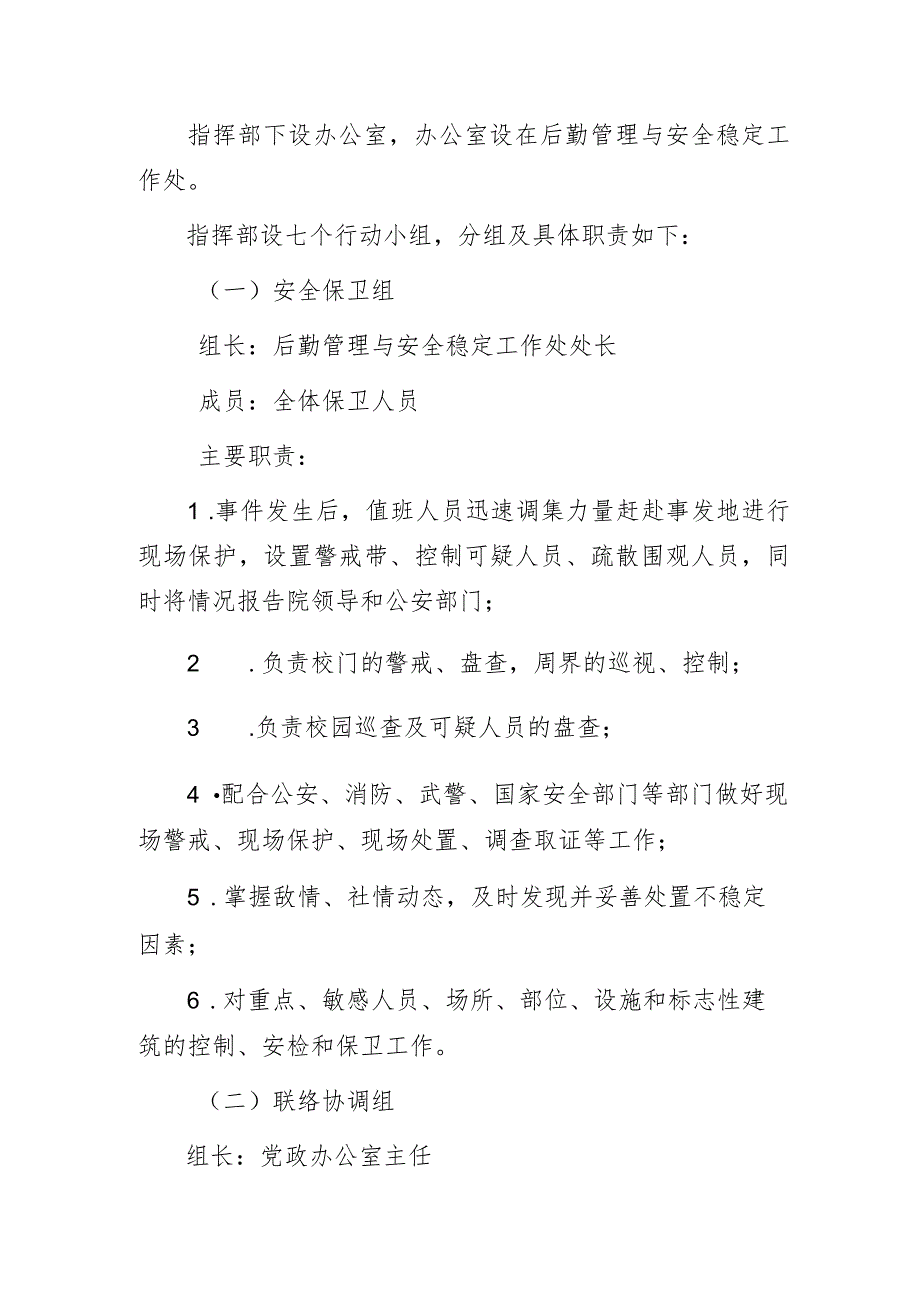 指挥部下设办公室，办公室设在后勤管理与安全稳定工
作处。
指挥部设七个行动小组，分组及具体职责如下：
（一）安全保卫组
组长：后勤管理与安全稳定工作处处长
成员：全体保卫人员
主要职责：
1 .事件发生后，值班人员迅速调集力量赶赴事发地进行
现场保护，设置警戒带、控制可疑人员、疏散围观人员，同
时将情况报告院领导和公安部门；
2 .负责校门的警戒、盘查，周界的巡视、控制；
3 .负责校园巡查及可疑人员的盘查；
4 •配合公安、消防、武警、国家安全部门等部门做好现
场警戒、现场保护、现场处置、调查取证等工作；
5 .掌握敌情、社情动态，及时发现并妥善处置不稳定
因素；
6 .对重点、敏感人员、场所、部位、设施和标志性建
筑的控制、安检和保卫工作。
（二）联络协调组
组长：党政办公室主任